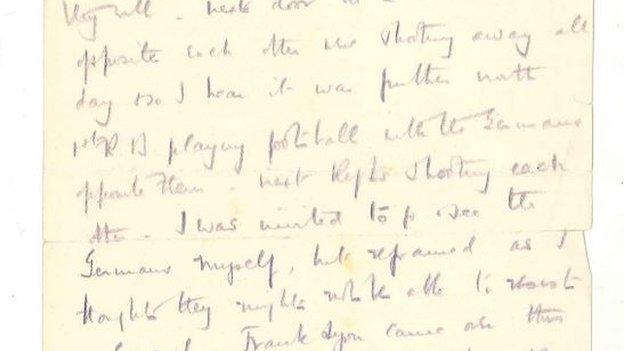 very well. next door
opposite each other are shooting away all
day so I hear it was further north
1st R B playing football with the Germans
opposite them. next Regts shooting each
other. I was invited to go & see the
Germans myself, but refrained as I
thought they might not be able to resist
Frank Lyon came over this